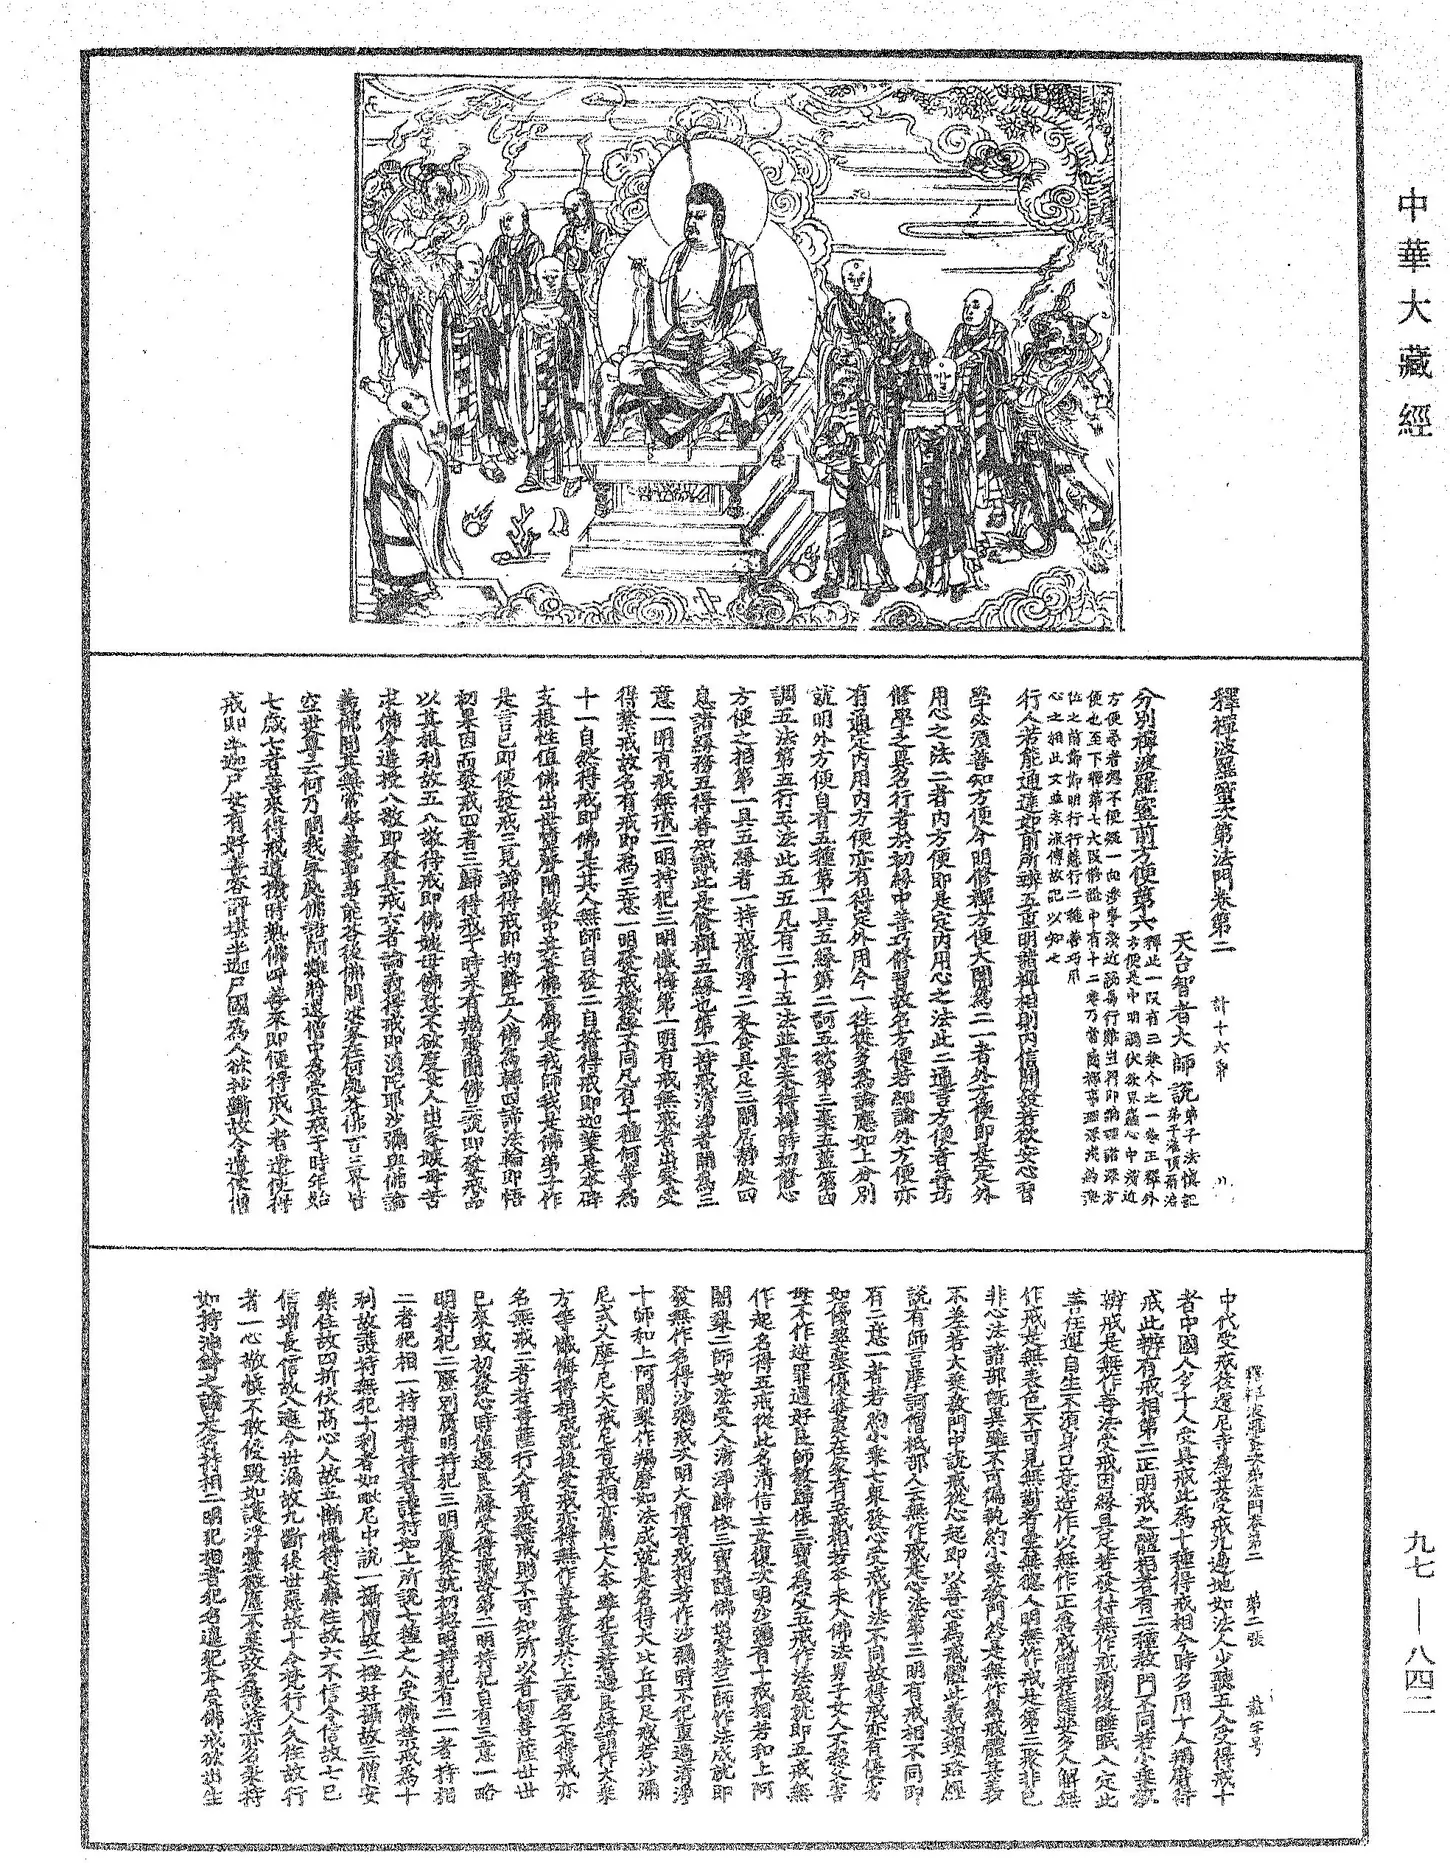 中華大藏經
釋禪波羅蜜次第法門卷第二
計十六番
天台智者大師說
弟子法慎記
弟子灌頂再治
分別禪波羅蜜前方便第六
釋此一段有三卷今之一卷正釋外
方便是中明調伏欲界麤心中淺近
方便尋者恐不便謂一向涉事淺近說為行難豈得即論理諸深方
便也至下釋第七大段修證中有十二卷乃當廣禪事理深淺為深
位之前節節明行行慧行二種善巧用
心之相此文並未流傳故記以知之
行人若能通達即前所辨五重明諸禪相則內信開發若欲安心習
學必須善知方便今明修禪方便大開為二一者外方便即是定外
用心之法二者內方便即是定內用心之法此二通言方便者善巧
修學之異名行者於初緣中善巧修習故名方便若細論外方便亦
有通定內用內方便亦有得定外用今一往從多為論應如上分別
就明外方便自有五種第一具五緣第二訶五欲第三棄五蓋第四
調五法第五行五法此五五凡有二十五法並是未得禪時初修心
方便之相第一具五緣者一持戒清淨二衣食具足三閒居靜處四
息諸緣務五得善知識此是修禪五緣也第一持戒清淨者開為三
意一明有戒無戒二明持犯三明懺悔第一明有戒無戒者出家受
得禁戒故名有戒即為三意一明發戒機緣不同凡有十種何等為
十一自然得戒即佛是其人無師自發二自誓得戒即迦葉是本辟
支根性值佛出世將墮聲聞數中來至佛言佛是我師我是佛弟子作
是言已即便發戒三見諦得戒即拘隣五人佛為轉四諦法輪即悟
初果因而發戒四者三歸得戒于時未有羯磨聞佛三說即發戒品
以其根利故五八敬得戒即佛姨母佛意不欲度女人出家姨母苦
求佛令遣授八敬即發具戒六者論義得戒即須陀耶沙彌與佛論
義佛問其無常等義事事能答後佛問汝家在何處答佛言三界皆
空世尊云何乃問我家處佛語阿難將還僧中為受具戒于時年始
七歲七者善來得戒道機時熟佛呼善來即便得戒八者遣使得
戒即半迦尸女有好善容評堪半迦尸國為人欲抄斷故令遣使僧
釋禪波羅蜜次第法門卷第二 第二張 [] 字号
中代受戒後還尼寺為其受戒九邊地如法人少聽五人受得戒十
者中國人多十人受具戒此為十種得戒相今時多用十人羯磨得
戒此辨有戒相第二正明戒之體相者有二種教門不同若小乘教
辨戒是無作善法受戒因緣具足若發得無作戒爾後睡眠入定此
善任運自生不須身口意造作以無作正為戒體若薩婆多人解無
作戒是無表色不可見無對若曇無德人明無作戒是第三聚非色
非心法諸部既異雖不可偏執約小乘教門終是無作為戒體其義
不差若大乘教門中說戒從心起即以善心為戒體此義如瓔珞經
說有師言摩訶僧祇部人云無作戒是心法第三明有戒相不同即
有二意一者若約小乘七眾發心受戒作法不同故得戒亦有優劣
如優婆塞優婆夷在家有五戒相若本未入佛法男子女人不殺父害
母不作逆罪遇好良師教歸依三寶為受五戒作法成就即五戒無
作起名得五戒從此名清信士女復次明沙彌有十戒相若和上阿
闍梨二師如法受人清淨歸依三寶隨佛出家若二師作法成就即
發無作名得沙彌戒次明大僧有戒相若作沙彌時不犯重過清淨
十師和上阿闍梨作羯磨如法成就是名得大比丘具足戒若沙彌
尼式叉摩尼大戒尼有戒相亦爾七人本雖犯重若遇良緣謂作大乘
方等懺悔得相成就後受戒亦得無作善發異於上說名不得戒亦
名無戒二者若菩薩行人有戒無戒則不可知所以者何菩薩世世
已來或初發心時值遇良緣受得戒故第二明持犯自有三意一略
明持犯二歷別廣明持犯三明覆發就初犯明持犯有二一者持相
二者犯相一持相者持者護持如上所說七種之人受佛禁戒為十
利故護持無犯十利者如毗尼中說一攝僧故二極好攝故三僧安
樂住故四折伏高心人故五慚愧得安樂住故六不信令信故七已
信增長信故八遮今世漏故九斷後世惡故十令梵行人久住故行
者一心敬慎不敢侵毀如護浮囊微塵不棄故護持亦名秉持
如持油鉢之譬是名持相二明犯相者犯名違犯本受佛戒欲出生
九七—八四二